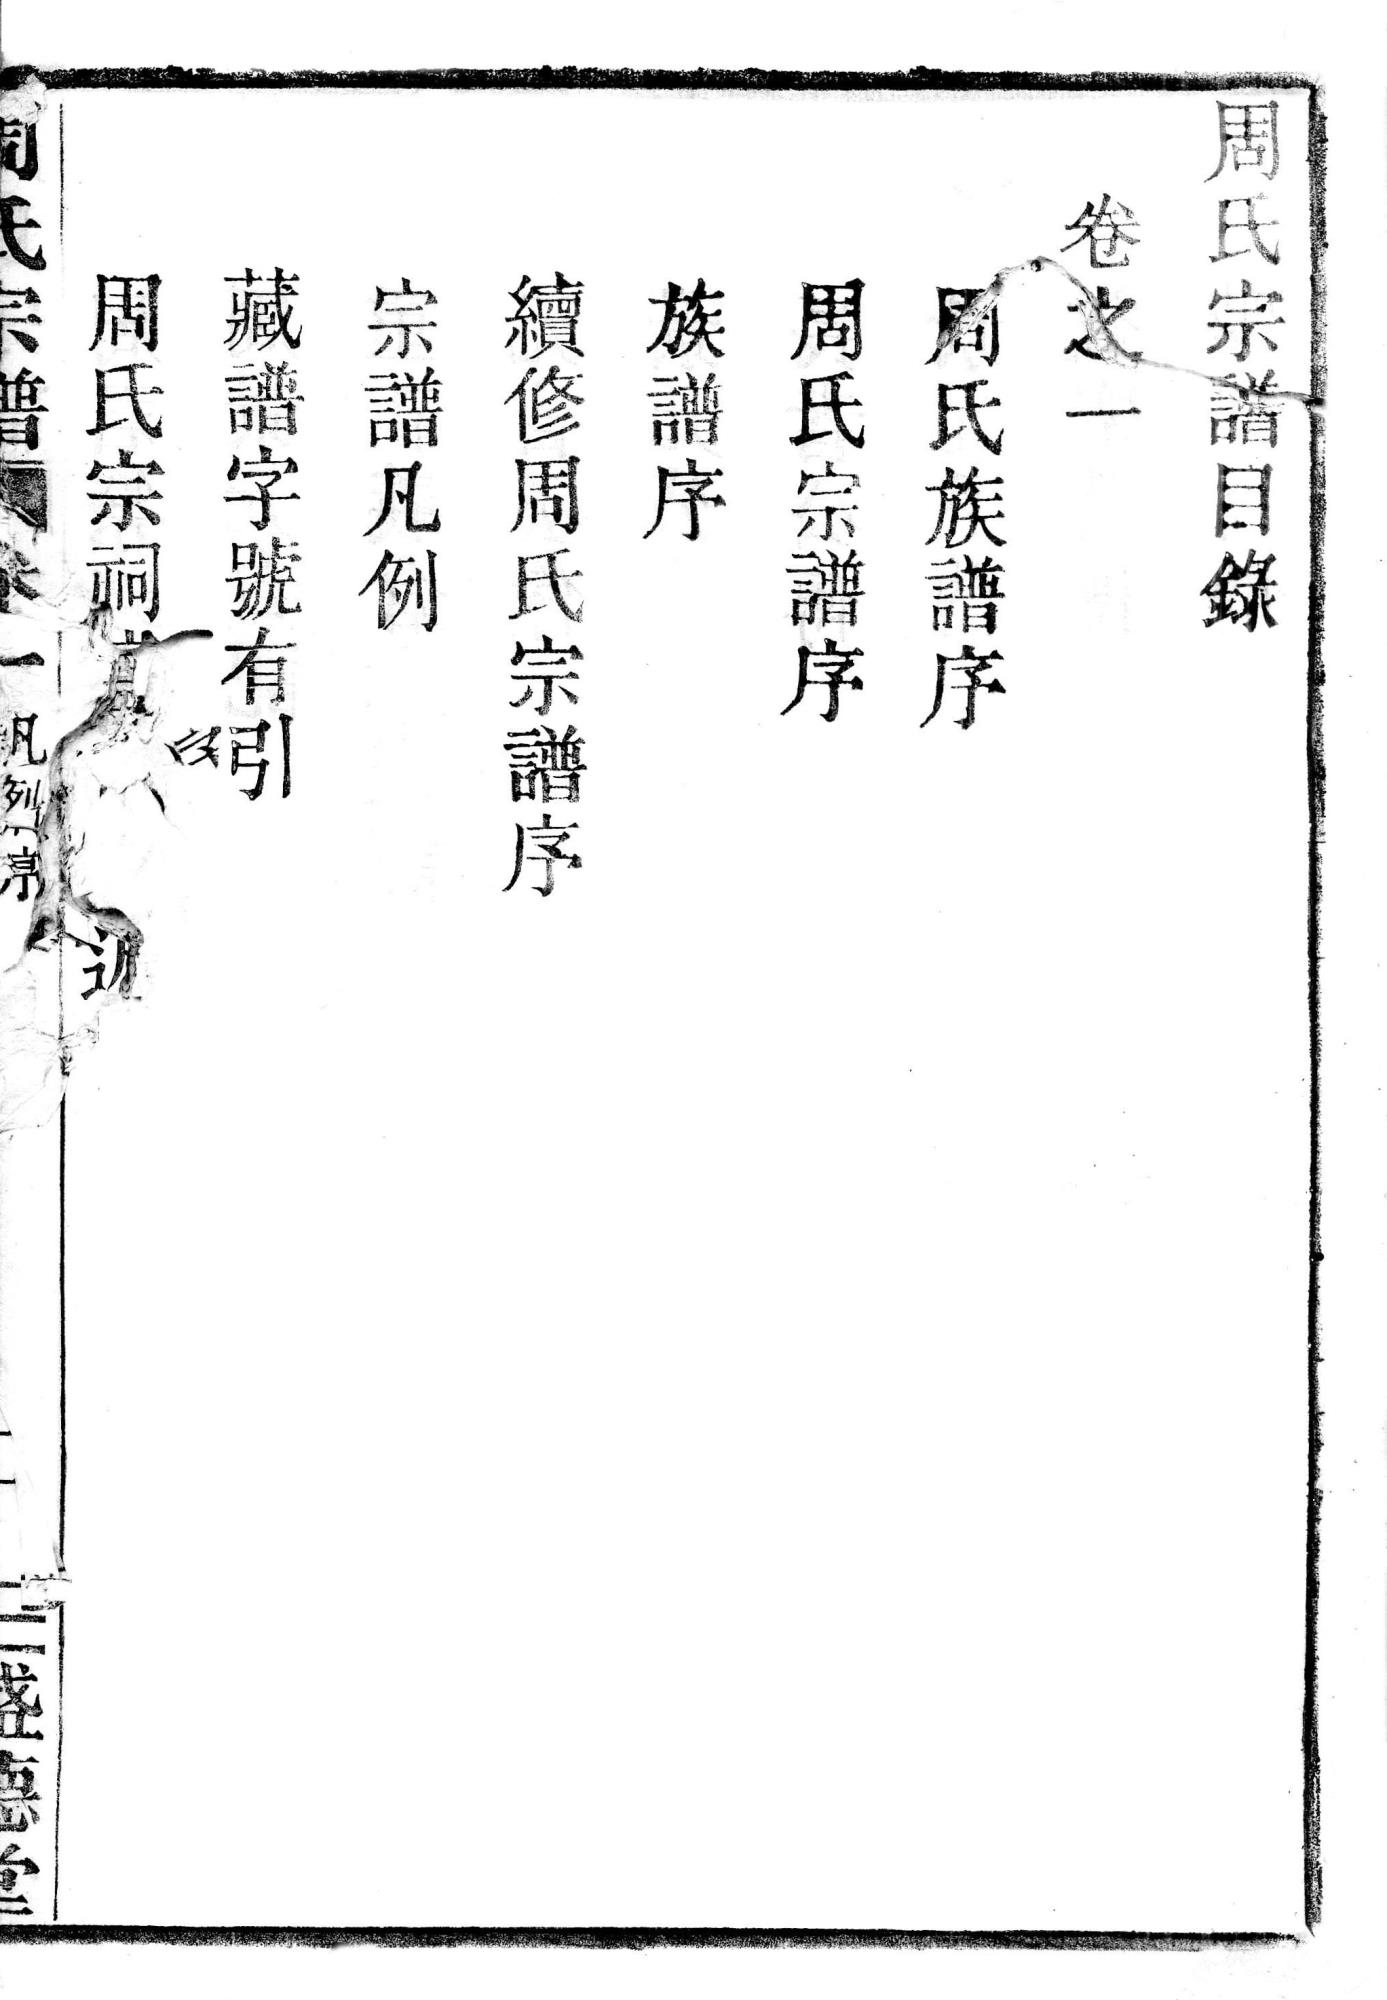 周氏宗譜目錄
卷之一
周氏族譜序
周氏宗譜序
族譜序
續修周氏宗譜序
宗譜凡例
藏譜字號有引
周氏宗祠
周氏宗譜
卷一
凡例
三
盛德堂